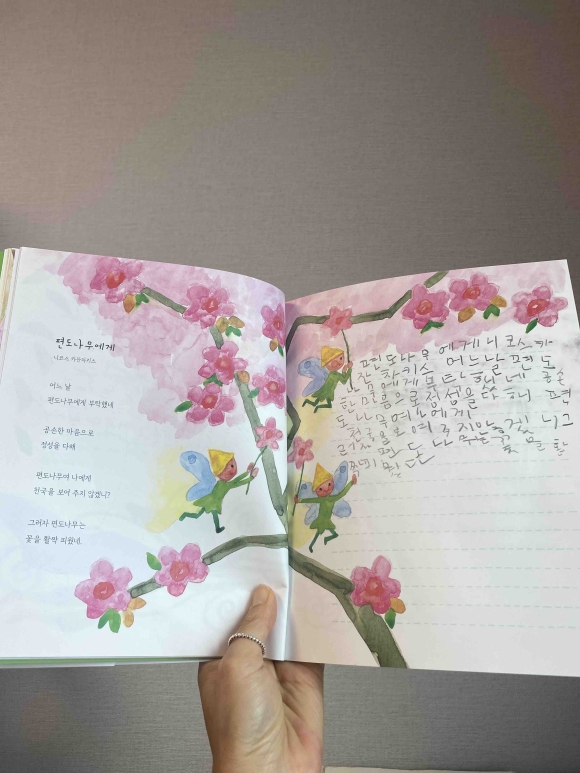 편도나무에게
니코스 카잔차키스
어느 날
편도나무에게 부탁했네
공손한 마음으로
정성을 다해
편도나무여 나에게
천국을 보여 주지 않겠니?
그러자 편도나무는
꽃을 활짝 피웠네.
편도나무에게니코스카
잔차키스 어느날편도
나무에게부탁했네 공손
한마음으로정성을다해 편
도나무여나에게
천국을보여주지않겠니그
러자편도나무는꽃을활
짝피